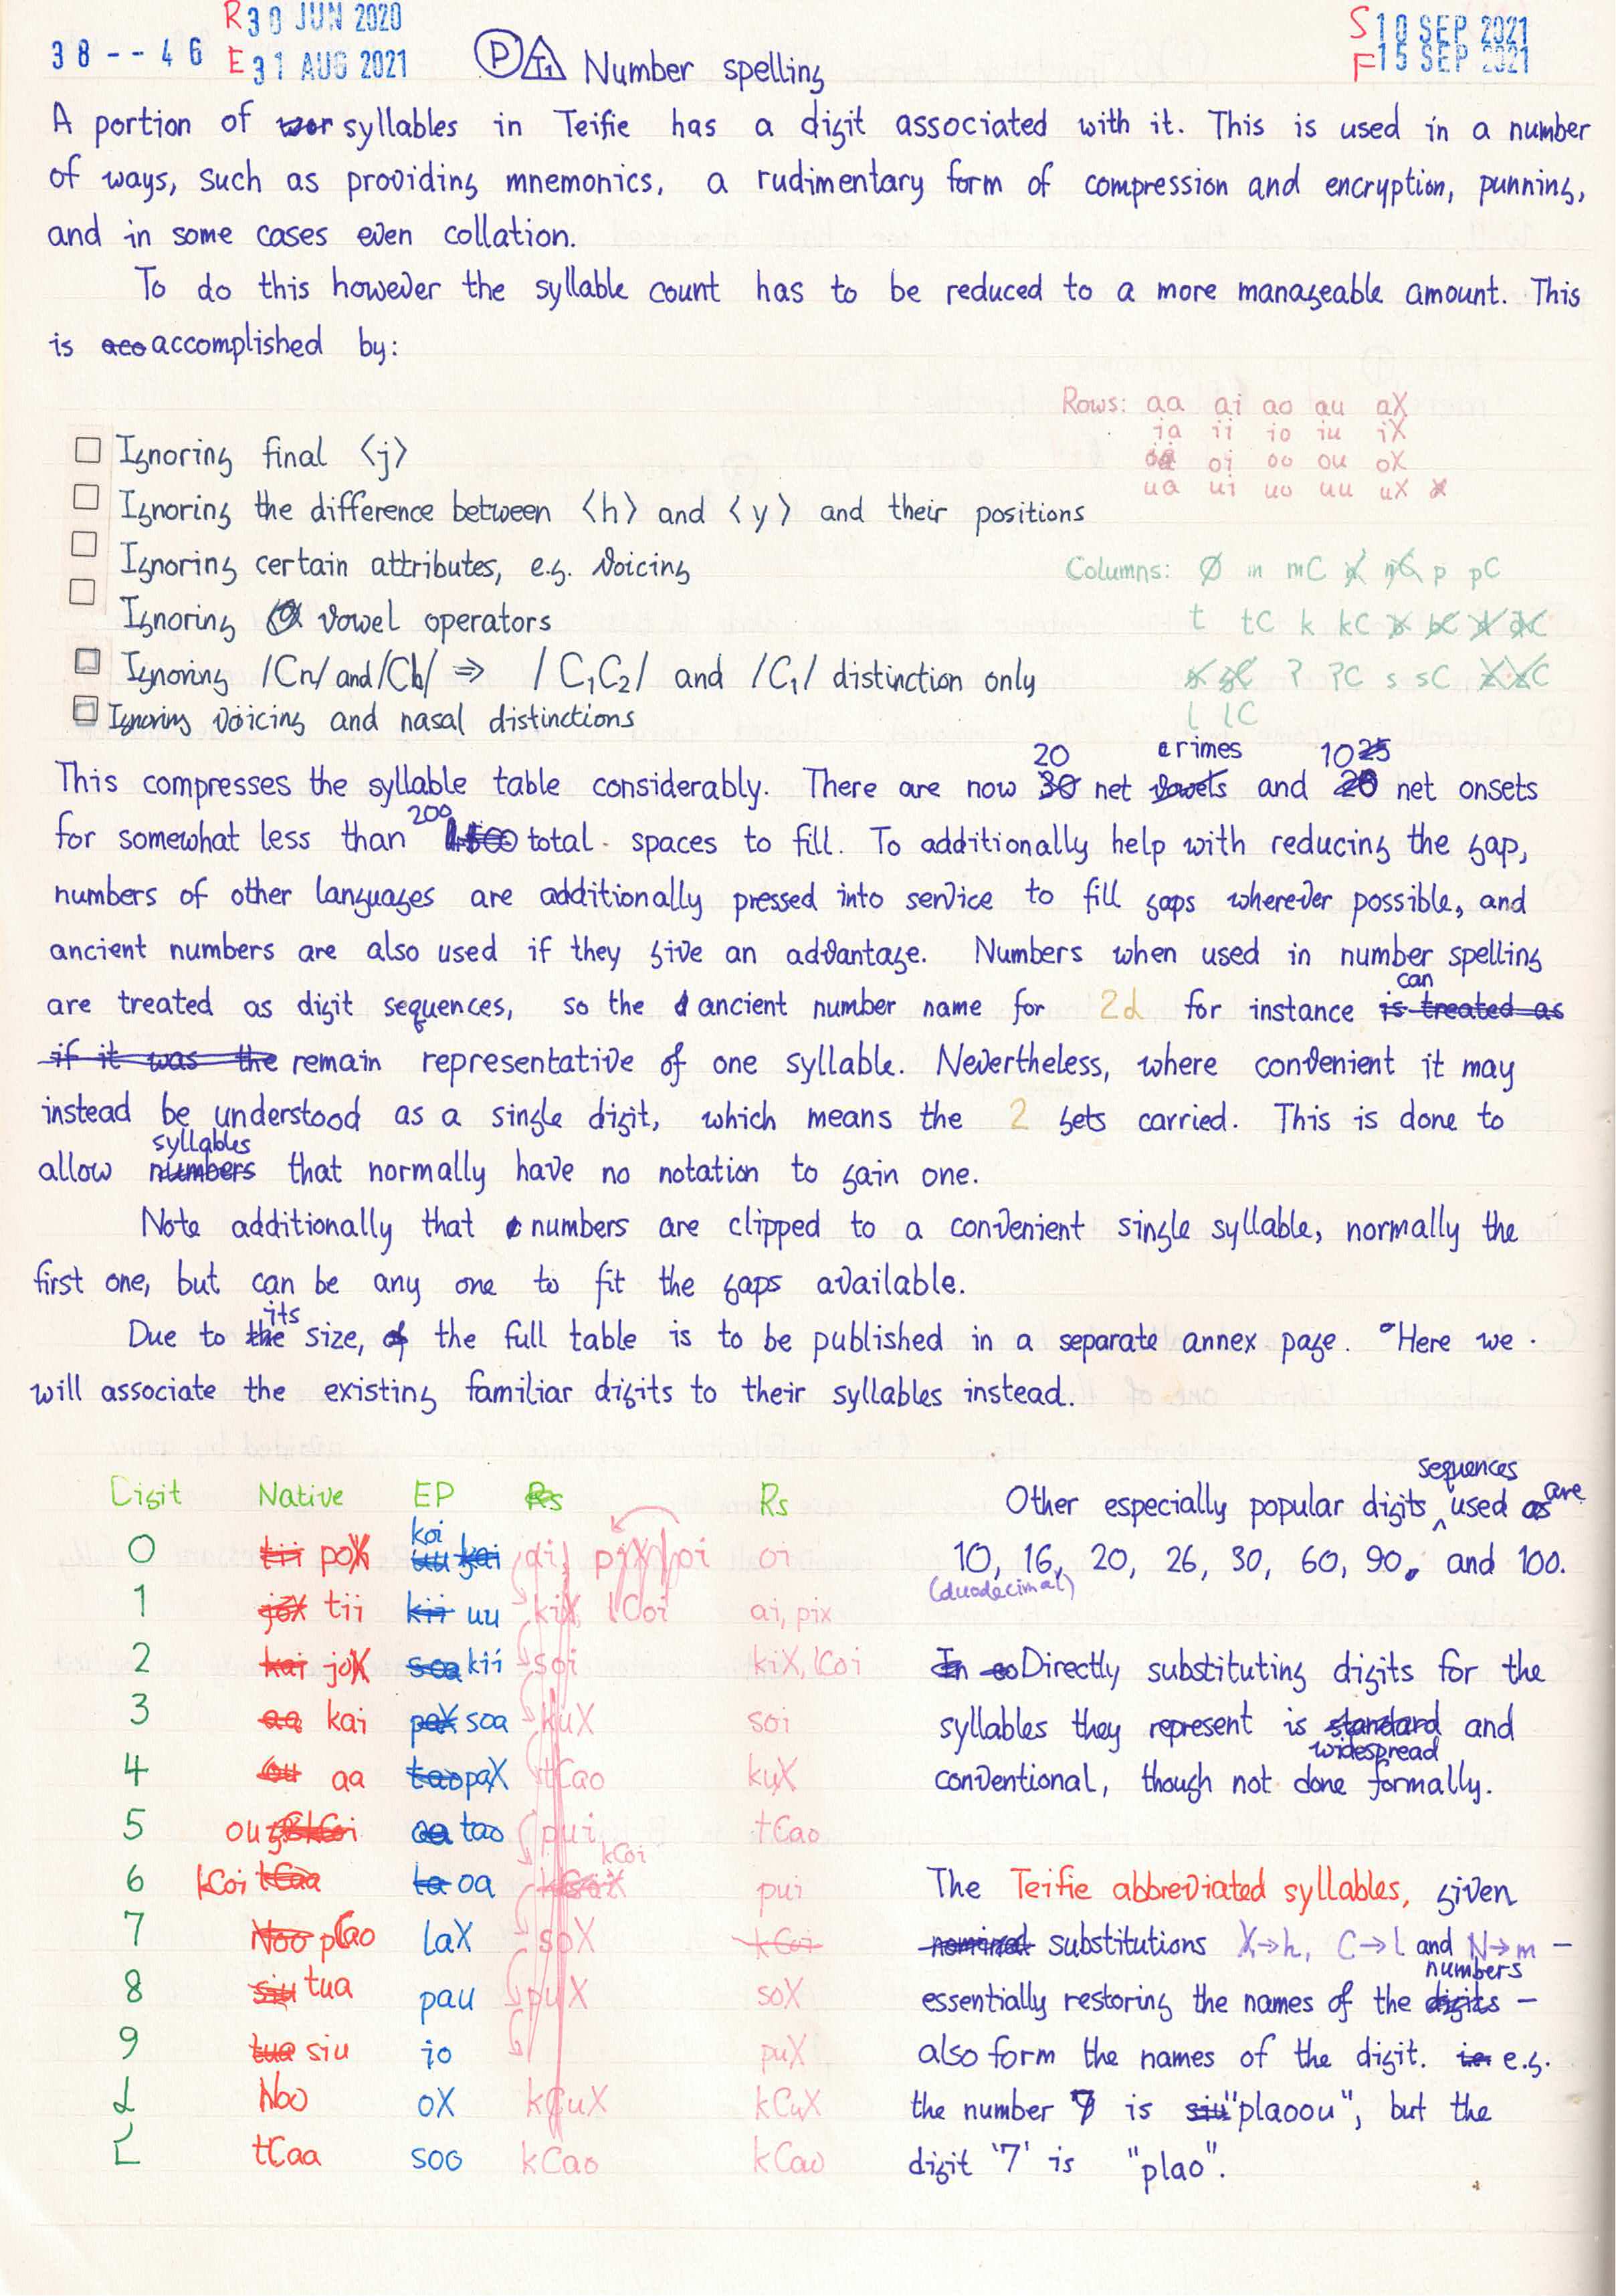 R 30 JUN 2020
38--46 E 31 AUG 2021
P T1 Number spelling
S 10 SEP 2021
F 15 SEP 2021
A portion of wor syllables in Teifie has a digit associated with it. This is used in a number
of ways, such as providing mnemonics, a rudimentary form of compression and encryption, punning,
and in some cases even collation.
To do this however the syllable count has to be reduced to a more manageable amount. This
is aco accomplished by:
Rows: aa ai ao au aX
ia ii io iu iX
oa oi oo ou oX
ua ui uo uu uX
☐ Ignoring final ⟨j⟩
☐ Ignoring the difference between ⟨h⟩ and ⟨y⟩ and their positions
☐ Ignoring certain attributes, e.g. voicing
☐ Ignoring vowel operators
☐ Ignoring /Cn/ and /Cb/ ⇒ /C₁C₂/ and /C₁/ distinction only
☐ Ignoring voicing and nasal distinctions
Columns: Ø m mC n nC p pC
t tC k kC b bC d dC
g gC ? ?C s sC
l lC
20 rimes 10 25
This compresses the syllable table considerably. There are now 30 net vowels and 20 net onsets
200
for somewhat less than total spaces to fill. To additionally help with reducing the gap,
numbers of other languages are additionally pressed into service to fill gaps wherever possible, and
ancient numbers are also used if they give an advantage. Numbers when used in number spelling
can
are treated as digit sequences, so the ancient number name for 2d for instance is treated as
if it was the remain representative of one syllable. Nevertheless, where convenient it may
instead be understood as a single digit, which means the 2 gets carried. This is done to
syllables
allow numbers that normally have no notation to gain one.
Note additionally that numbers are clipped to a convenient single syllable, normally the
first one, but can be any one to fit the gaps available.
its
Due to the size, of the full table is to be published in a separate annex page. Here we
will associate the existing familiar digits to their syllables instead.
Digit Native EP Rs Rs
koi
0 tii poX uu kai ai piX poi oi
1 joX tii kii uu kiX, lCoi ai, pix
2 kai joX soa kii soi kiX, lCoi
3 aa kai paX soa kuX soi
4 ou aa tao paX tCao kuX
5 ou kCoi oa tao pui tCao
kCoi
6 kCoi tCaa oa pui
7 Noo pCao laX soX kCoi
8 siu tua pau puX soX
9 tua siu io puX
Noo oX kCuX kCuX
tCaa soo kCao kCao
sequences
Other especially popular digits ^ used as are
10, 16, 20, 26, 30, 60, 90, and 100.
(duodecimal)
In Directly substituting digits for the
syllables they represent is standard and
widespread
conventional, though not done formally.
The Teifie abbreviated syllables, given
nominal substitutions X→h, C→l and N→m –
numbers
essentially restoring the names of the digits –
also form the names of the digit. ie e.g.
the number 7 is siu "plaoou", but the
digit '7' is "plao".